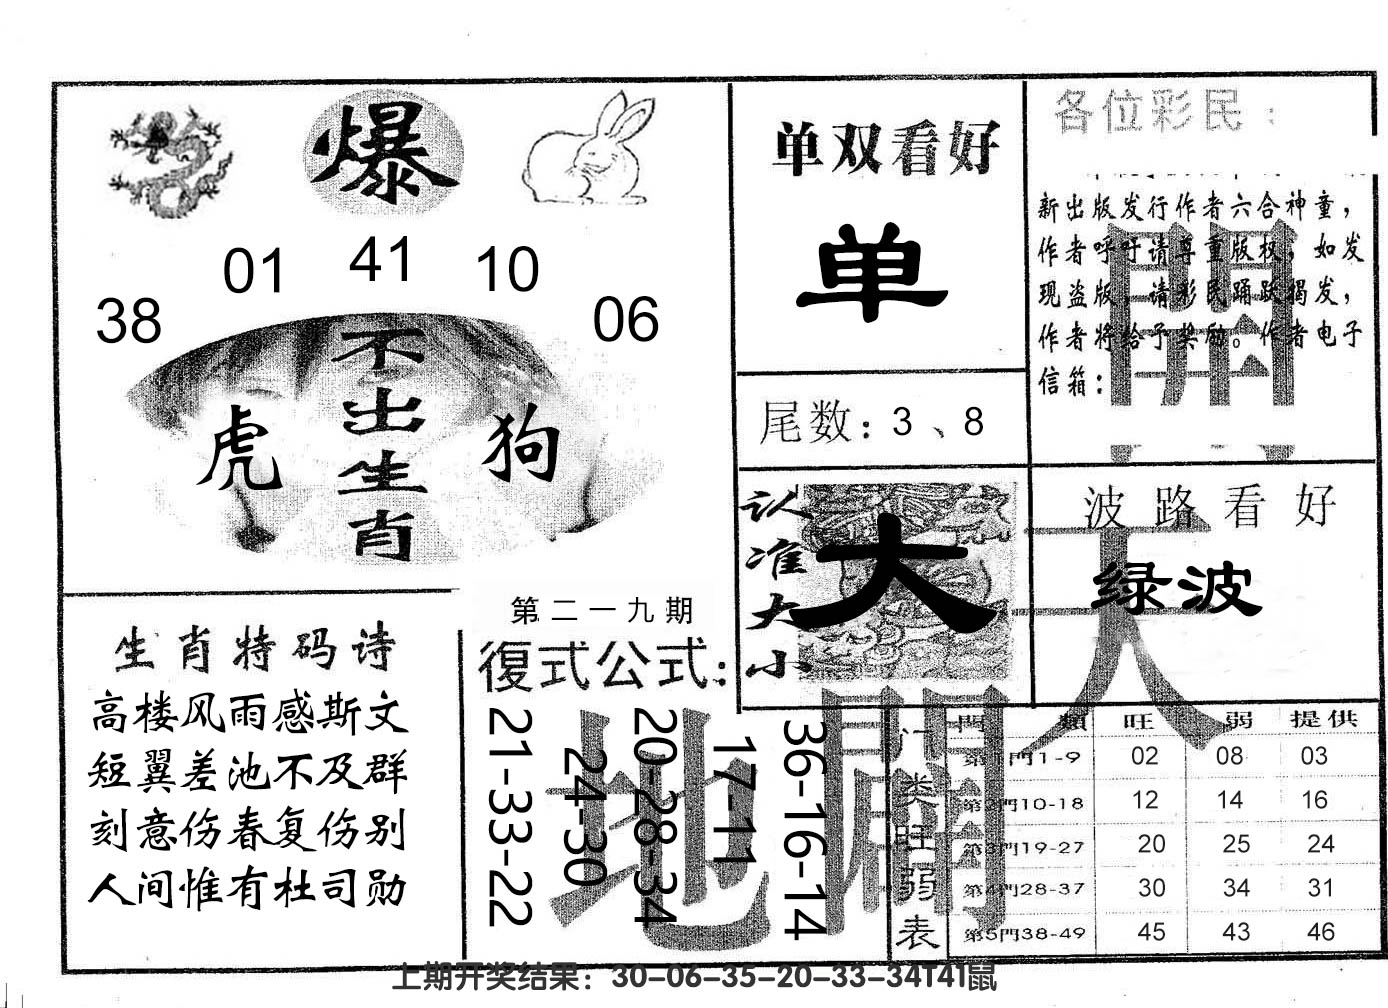 爆
01 41 10
38 06
不出生肖
虎 狗
单双看好
单
尾数：3、8
各位彩民：
新出版发行作者六合神童，
作者呼吁请尊重版权，如发
现盗版，请彩民踊跃揭发，
作者将给予奖励。作者电子
信箱：
開
认准大小
大
波路看好
绿波
天
生肖特码诗
高楼风雨感斯文
短翼差池不及群
刻意伤春复伤别
人间惟有杜司勋
第二一九期
復式公式：
21-33-22
24-30
20-28-34
17-11
36-16-14
地
门类旺弱表
門類 旺 弱 提供
第1門1-9 02 08 03
第2門10-18 12 14 16
第3門19-27 20 25 24
第4門28-37 30 34 31
第5門38-49 45 43 46
上期开奖结果：30-06-35-20-33-34T41鼠